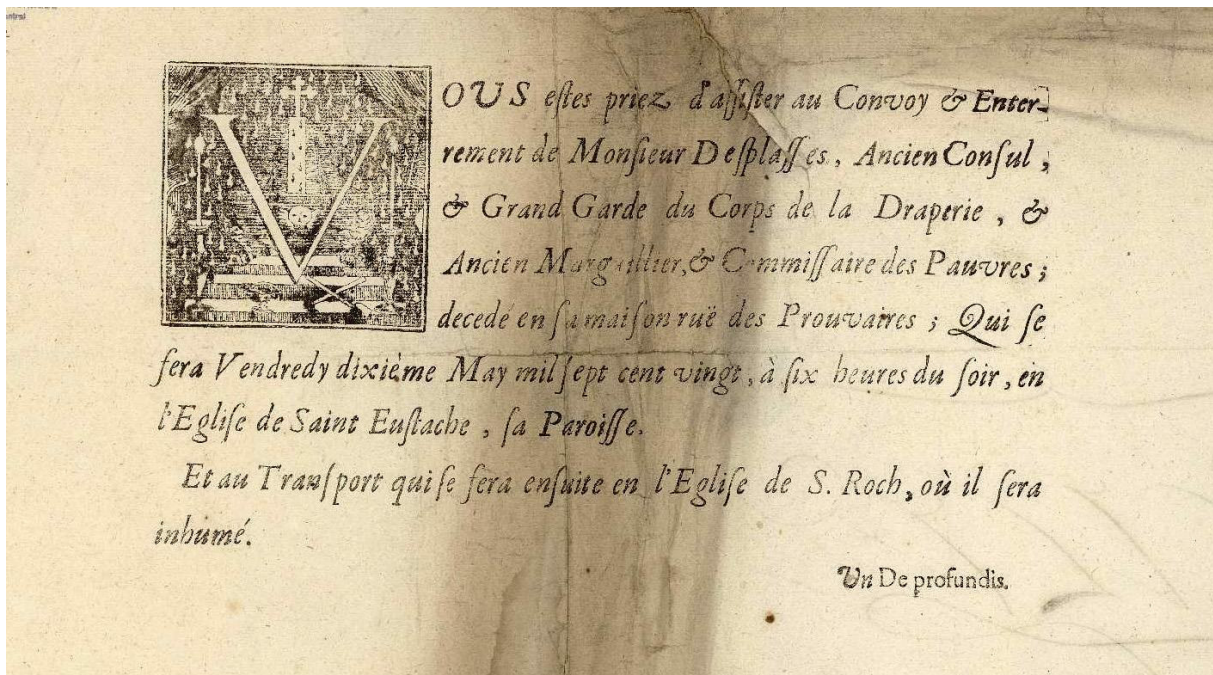 VOUS estes priez d'assister au Convoy & Enter-
rement de Monsieur Desplasses, Ancien Consul,
& Grand Garde du Corps de la Draperie, &
Ancien Marguillier, & Commissaire des Pauvres;
decedé en sa maison ruë des Prouvaires; Qui se
fera Vendredy dixiéme May mil sept cent vingt, à six heures du soir, en
l'Eglise de Saint Eustache, sa Paroisse.
Et au Transport qui se fera ensuite en l'Eglise de S. Roch, où il sera
inhumé.
Un De profundis.